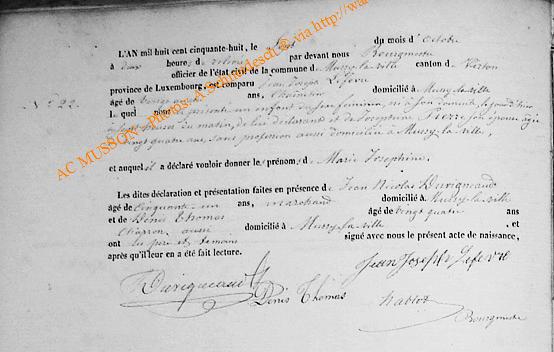 L'AN mil huit cent cinquante-huit, le du mois d'octobre
à deux heures, d relevée par devant nous Bourgmestre
officier de l'état civil de la commune de Mussy-la-ville canton de Virton
province de Luxembourg, est comparu Jean Joseph Lefevre
N° 22.
âgé de vingt ans, domicilié à Mussy-la-ville
lequel nous présenté un enfant du sexe féminin, né à son domicile, ce jourd'hui
à heures du matin, de lui déclarant et de Joséphine Pierre son épouse âgée
vingt quatre ans, sans profession aussi domiciliée à Mussy-la-ville,
et auquel il a déclaré vouloir donner les prénoms, d Marie Joséphine.
Les dites déclaration et présentation faites en présence de Jean Nicolas Duvigneaud
âgé de cinquante-un ans, marchand domicilié à Mussy-la-ville
et de Denis Thomas âgé de vingt quatre ans
aussi domicilié à Mussy-la-ville, et
ont les père et témoins signé avec nous le présent acte de naissance,
après qu'il leur en a été fait lecture.
Duvigneaud Denis Thomas Jean Joseph Lefevre
Bourgmestre
AC MUSSON - Photos: A. Schrobiltgesch © via http://wa